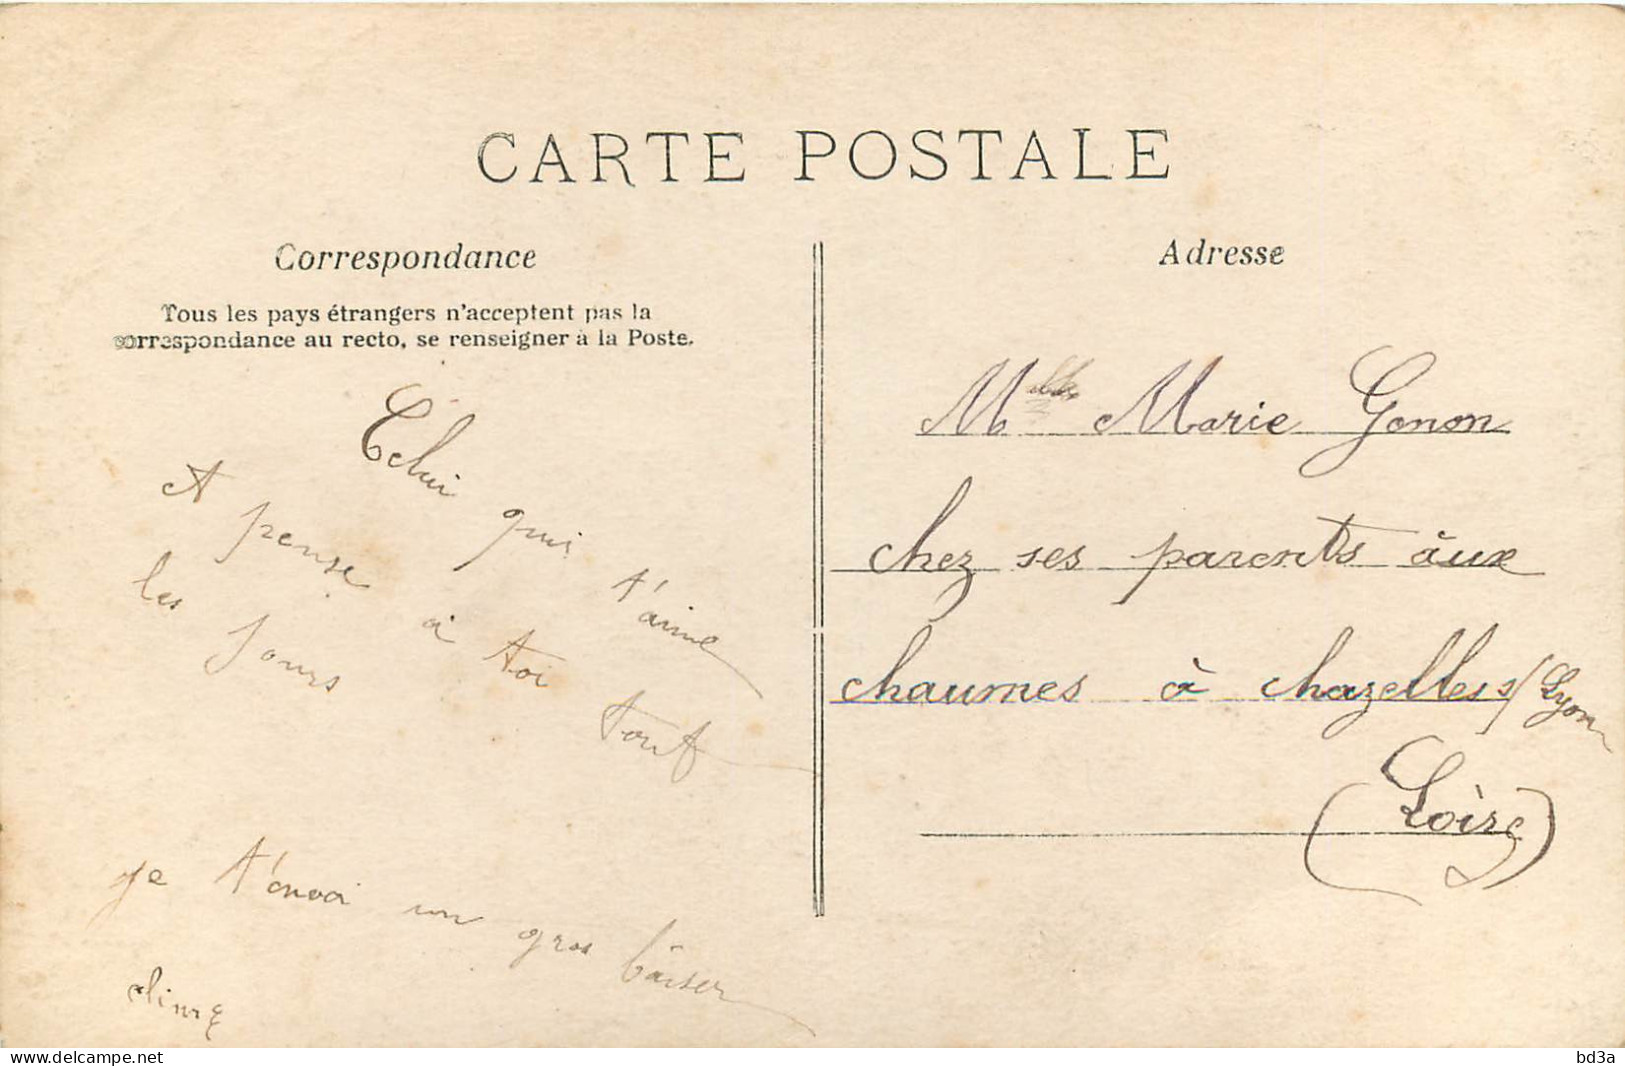 CARTE POSTALE
Correspondance
Tous les pays étrangers n'acceptent pas la
correspondance au recto, se renseigner à la Poste.
Celui qui t'aime
et pense à toi tout
les jours
je t'envoi un gros bâiser
Adresse
Mlle Marie Gonon
chez ses parents âux
chaumes à chazelles s/Lyon
(Loire)
www.delcampe.net
bd3a